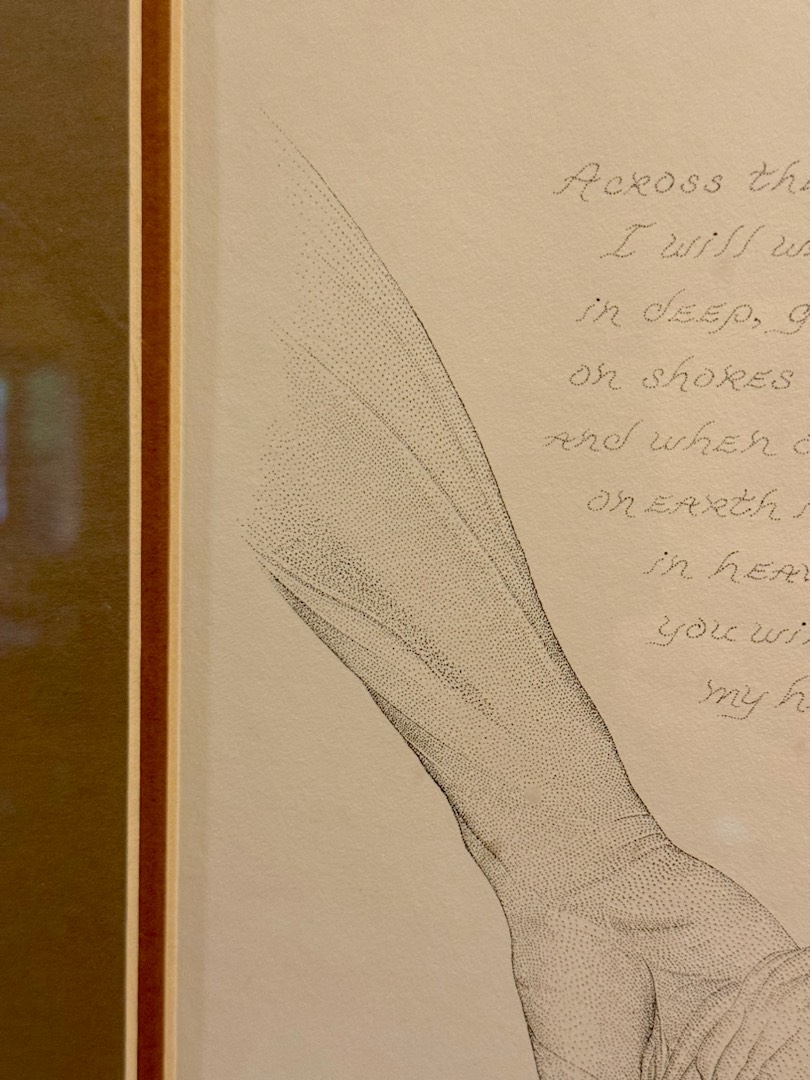 Across
I will
in deep,
on shores
and when
on earth
in
you
my